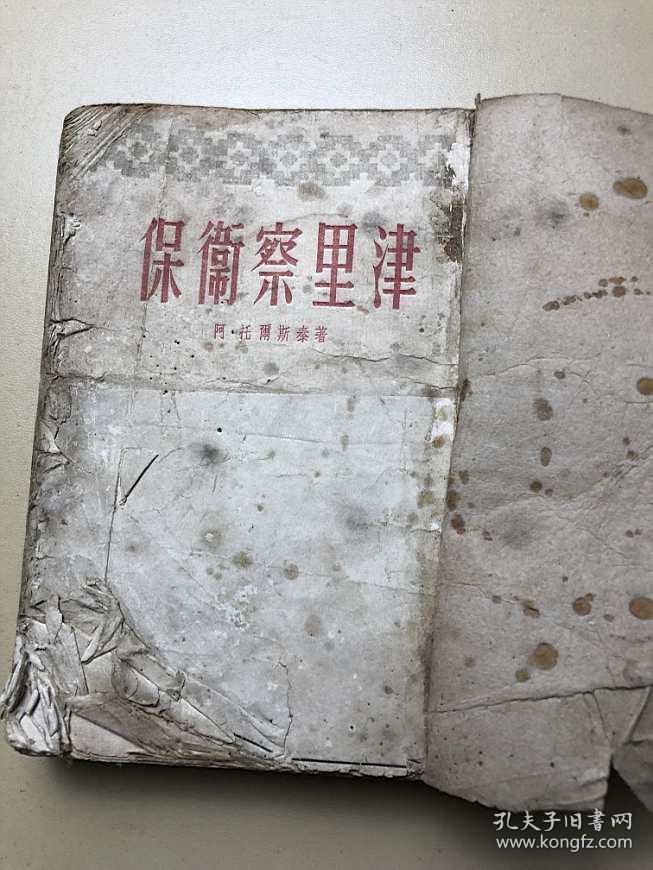 保衞察里津
阿·托爾斯泰著
孔夫子旧书网
www.kongfz.com